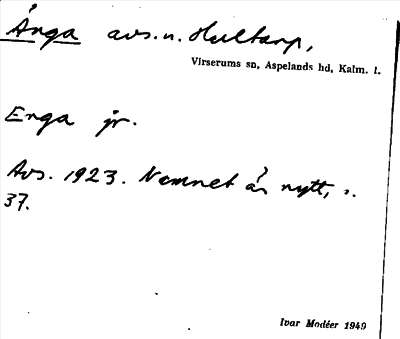 Änga avs. n. Hultarp,
Virserums sn, Aspelands hd, Kalm. l.
Enga jr.
Avs. 1923. Namnet är nytt, s.
37.
Ivar Modéer 1949